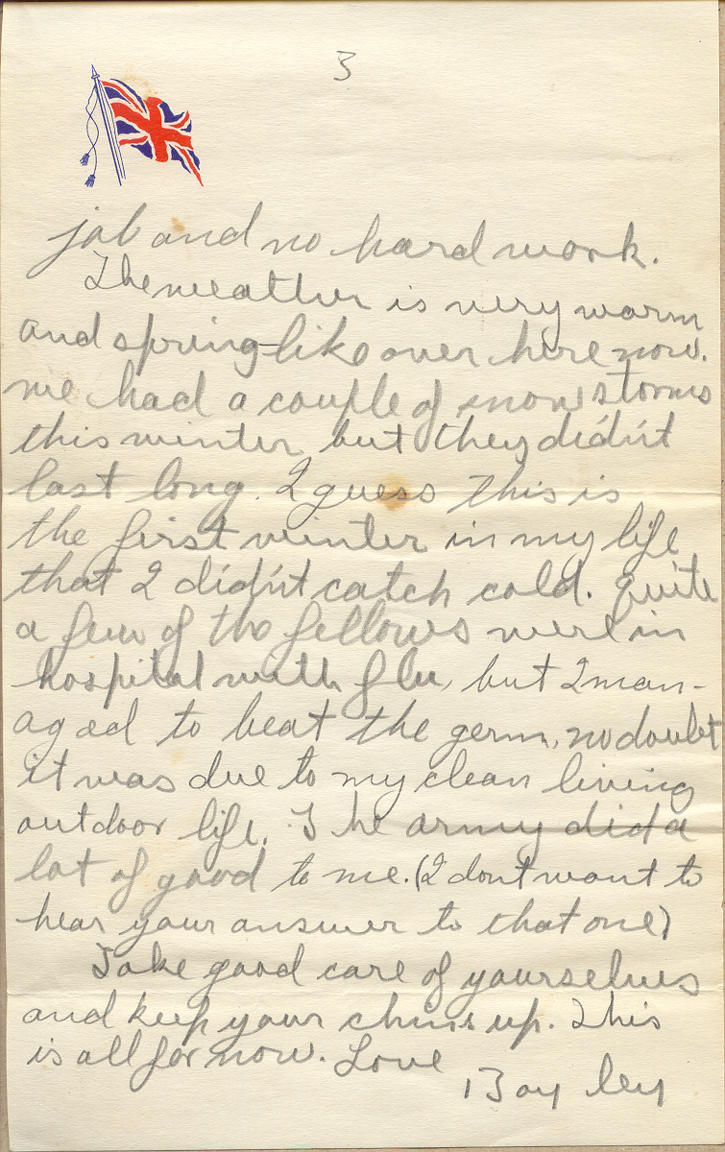 3
job and no hard work.
The weather is very warm
and spring-like over here now.
we had a couple of snow storms
this winter but they did'nt
last long. I guess this is
the first winter in my life
that I did'nt catch cold. Quite
a few of the fellows were in
hospital with flu, but I man-
aged to beat the germ, no doubt
it was due to my clean living
outdoor life. The army did a
lot of good to me. (I dont want to
hear your answer to that one)
Take good care of yourselves
and keep your chins up. This
is all for now. Love
Boy